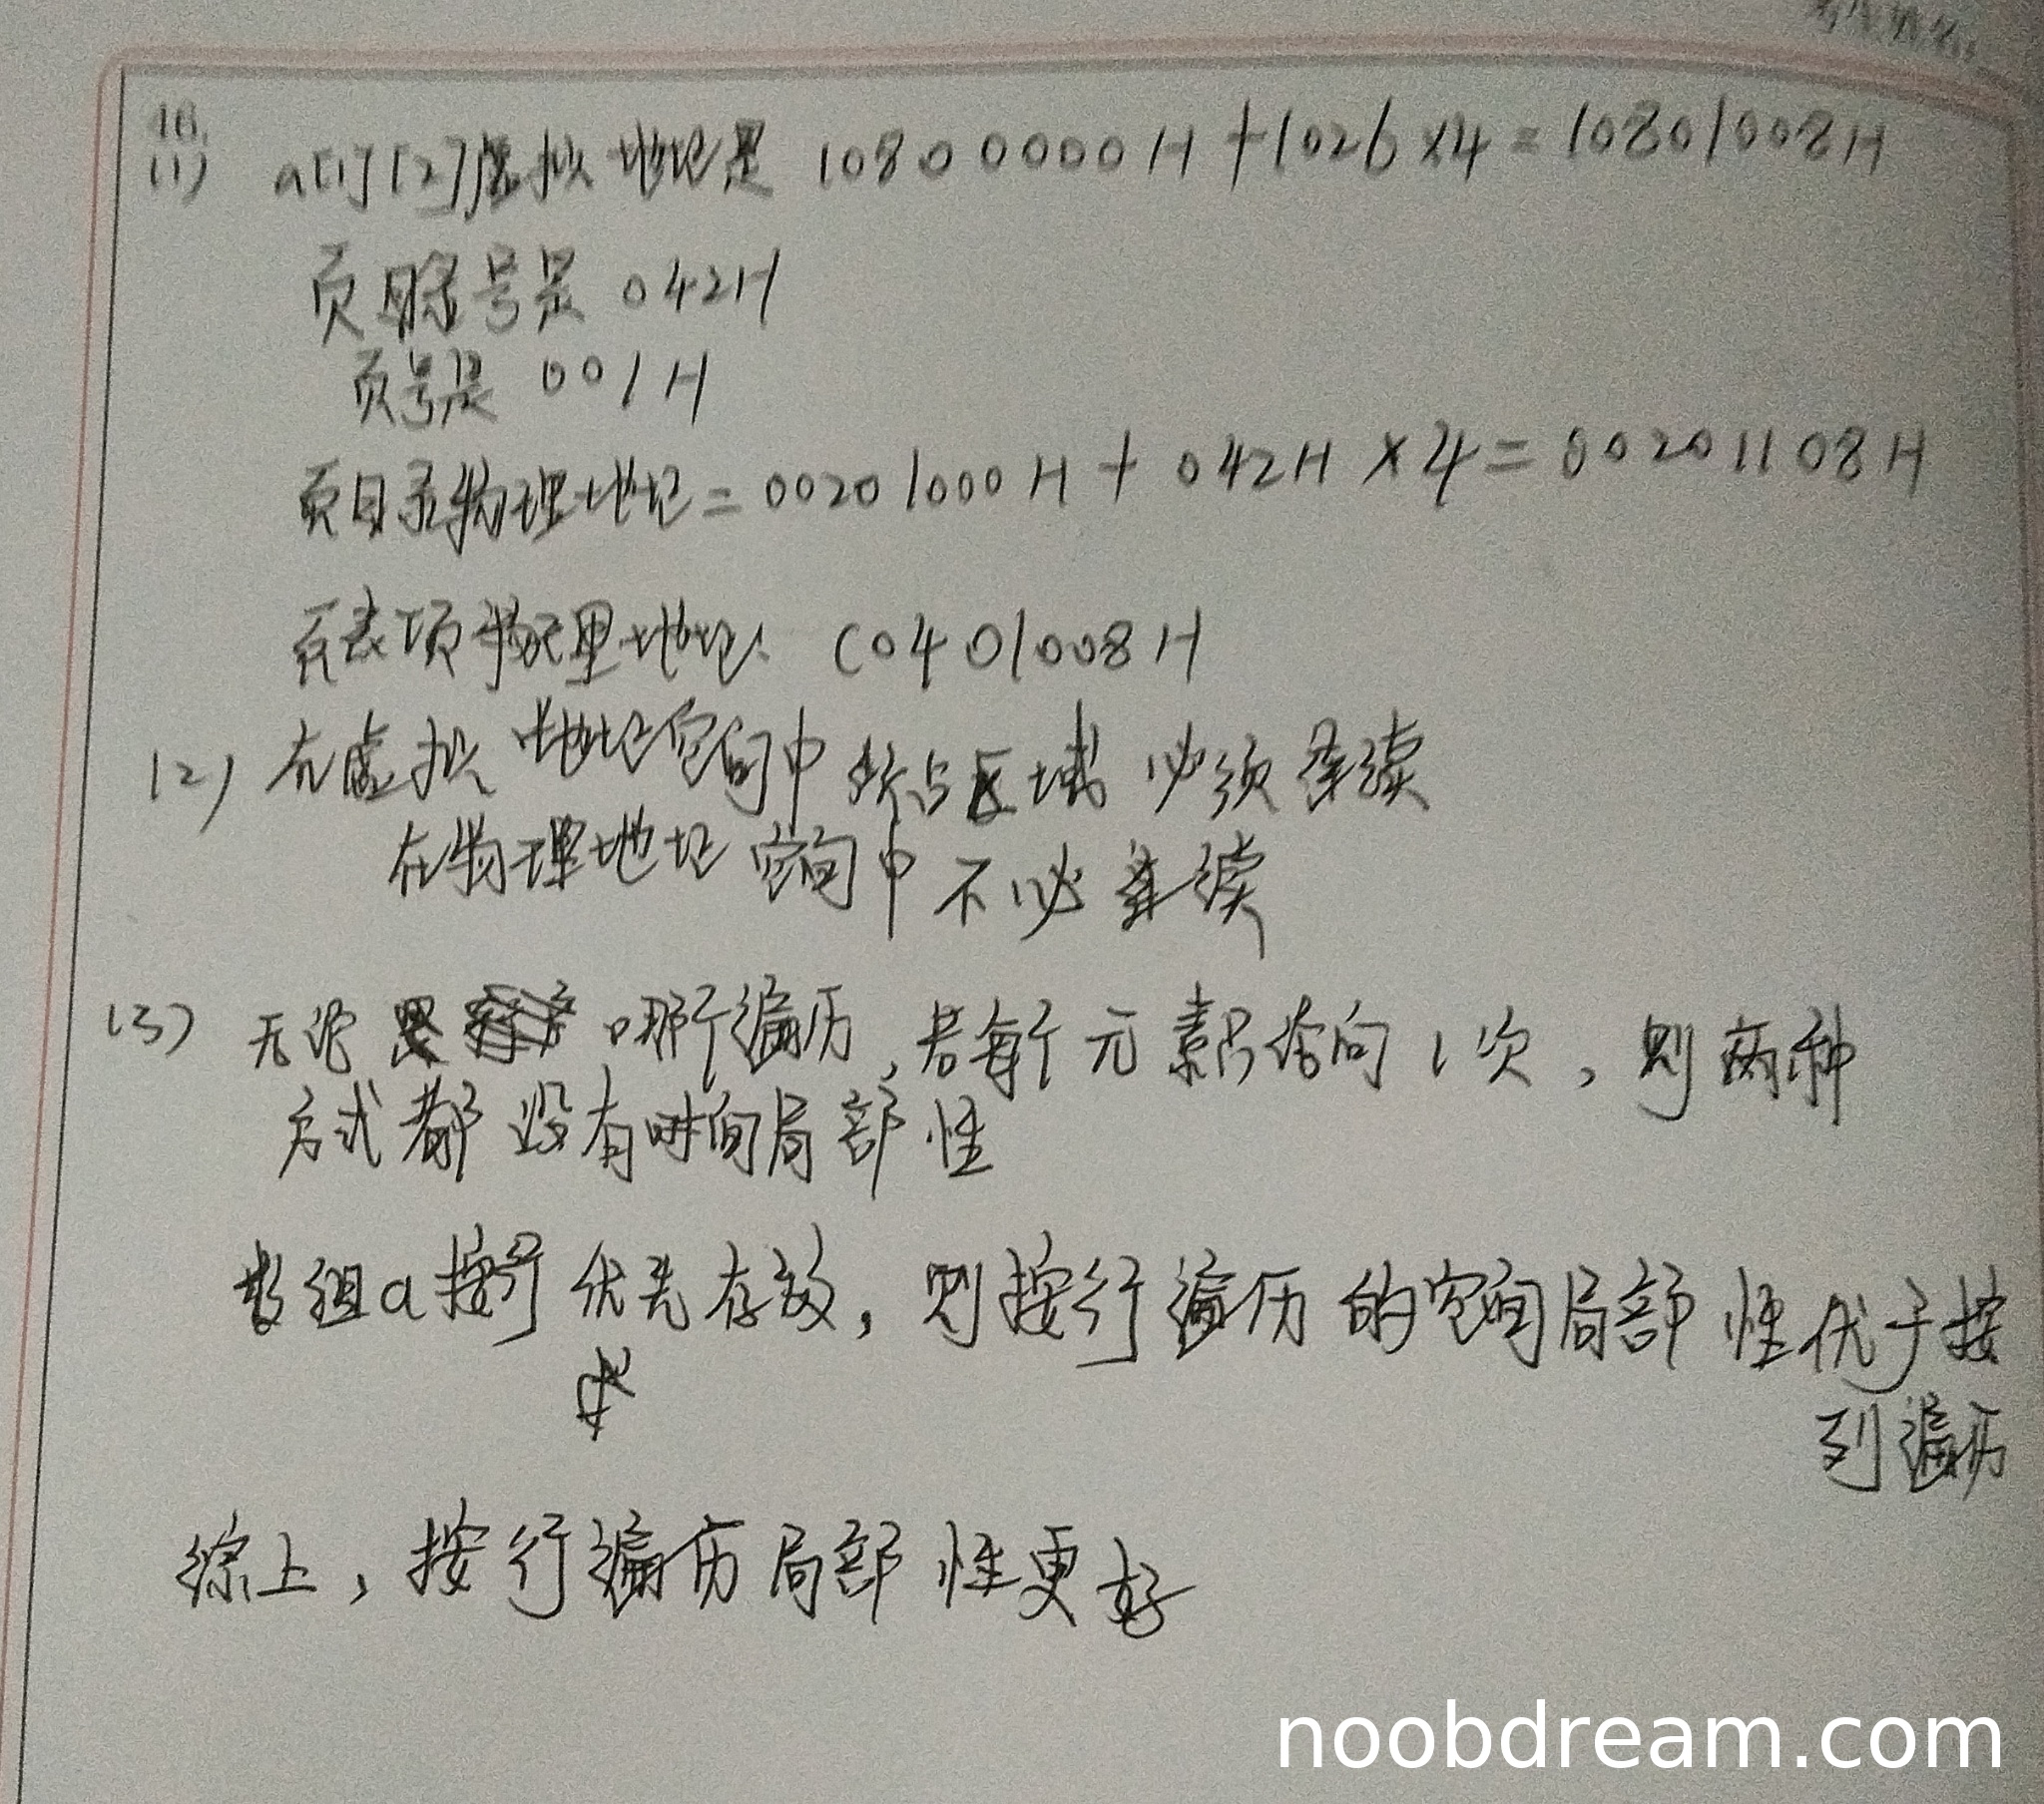 (1) a[1][2]虚拟地址是 10800000H+1026×4=10801008H
页目录号是 042H
页号是 001H
页目录物理地址=00201000H+042H×4=00201108H
页表项物理地址 C0401008H
(2) 在虚拟地址空间中所占区域必须连续
在物理地址空间中不必连续
(3) 无论 哪个遍历,若每个元素只访问1次,则两种
方式都没有时间局部性
数组a按行优先存放,则按行遍历的空间局部性优于按
列遍历
综上,按行遍历局部性更好
noobdream.com